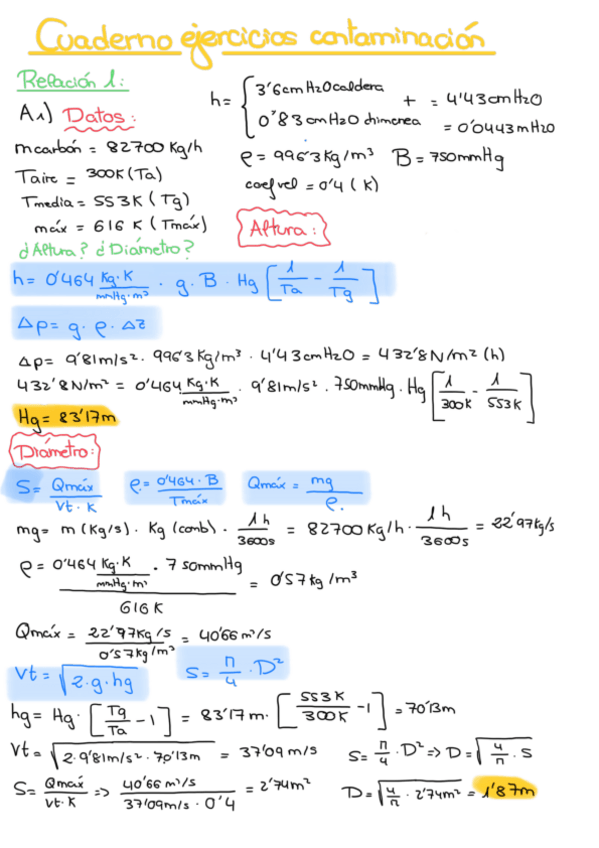 Cuaderno ejercicios contaminación
Relación 1:
A.1) Datos:
mcarbón = 82700 Kg/h
Taire = 300K (Ta)
Tmedia = 553K (Tg)
máx = 616 K (Tmáx)
¿Altura? ¿Diámetro?
h= { 3'6cmH2Ocaldera + = 4'43cmH2O
0'83cmH2O chimenea = 0'0443mH2O
ρ = 996'3Kg/m³ B = 750mmHg
coef vel = 0'4 (K)
Altura:
h= 0'464 Kg·K/mmHg·m³ · g · B · Hg [1/Ta - 1/Tg]
Δp= g · ρ · Δz
Δp= 9'81m/s² · 996'3 Kg/m³ · 4'43cmH2O = 432'8N/m² (h)
432'8N/m² = 0'464 Kg·K/mmHg·m³ · 9'81m/s² · 750mmHg · Hg [1/300K - 1/553K]
Hg = 83'17m
Diámetro:
S= Qmáx/Vt·K ρ= 0'464·B/Tmáx Qmáx = mg/ρ.
mg= m (Kg/s) · Kg (comb) · 1h/3600s = 82700Kg/h · 1h/3600s = 22'97Kg/s
ρ = 0'464 Kg·K/mmHg·m³ · 750mmHg / 616 K = 0'57kg/m³
Qmáx = 22'97Kg/s / 0'57Kg/m³ = 40'66m³/s
Vt = √2·g·hg S= π/4 · D²
hg= Hg · [Tg/Ta - 1] = 83'17m · [553K/300K - 1] = 70'13m
Vt= √2·9'81m/s²·70'13m = 37'09m/s S= π/4 · D² => D= √4/π · S
S= Qmáx/Vt·K => 40'66m³/s / 37'09m/s · 0'4 = 2'74m² D= √4/π · 2'74m² = 1'87m